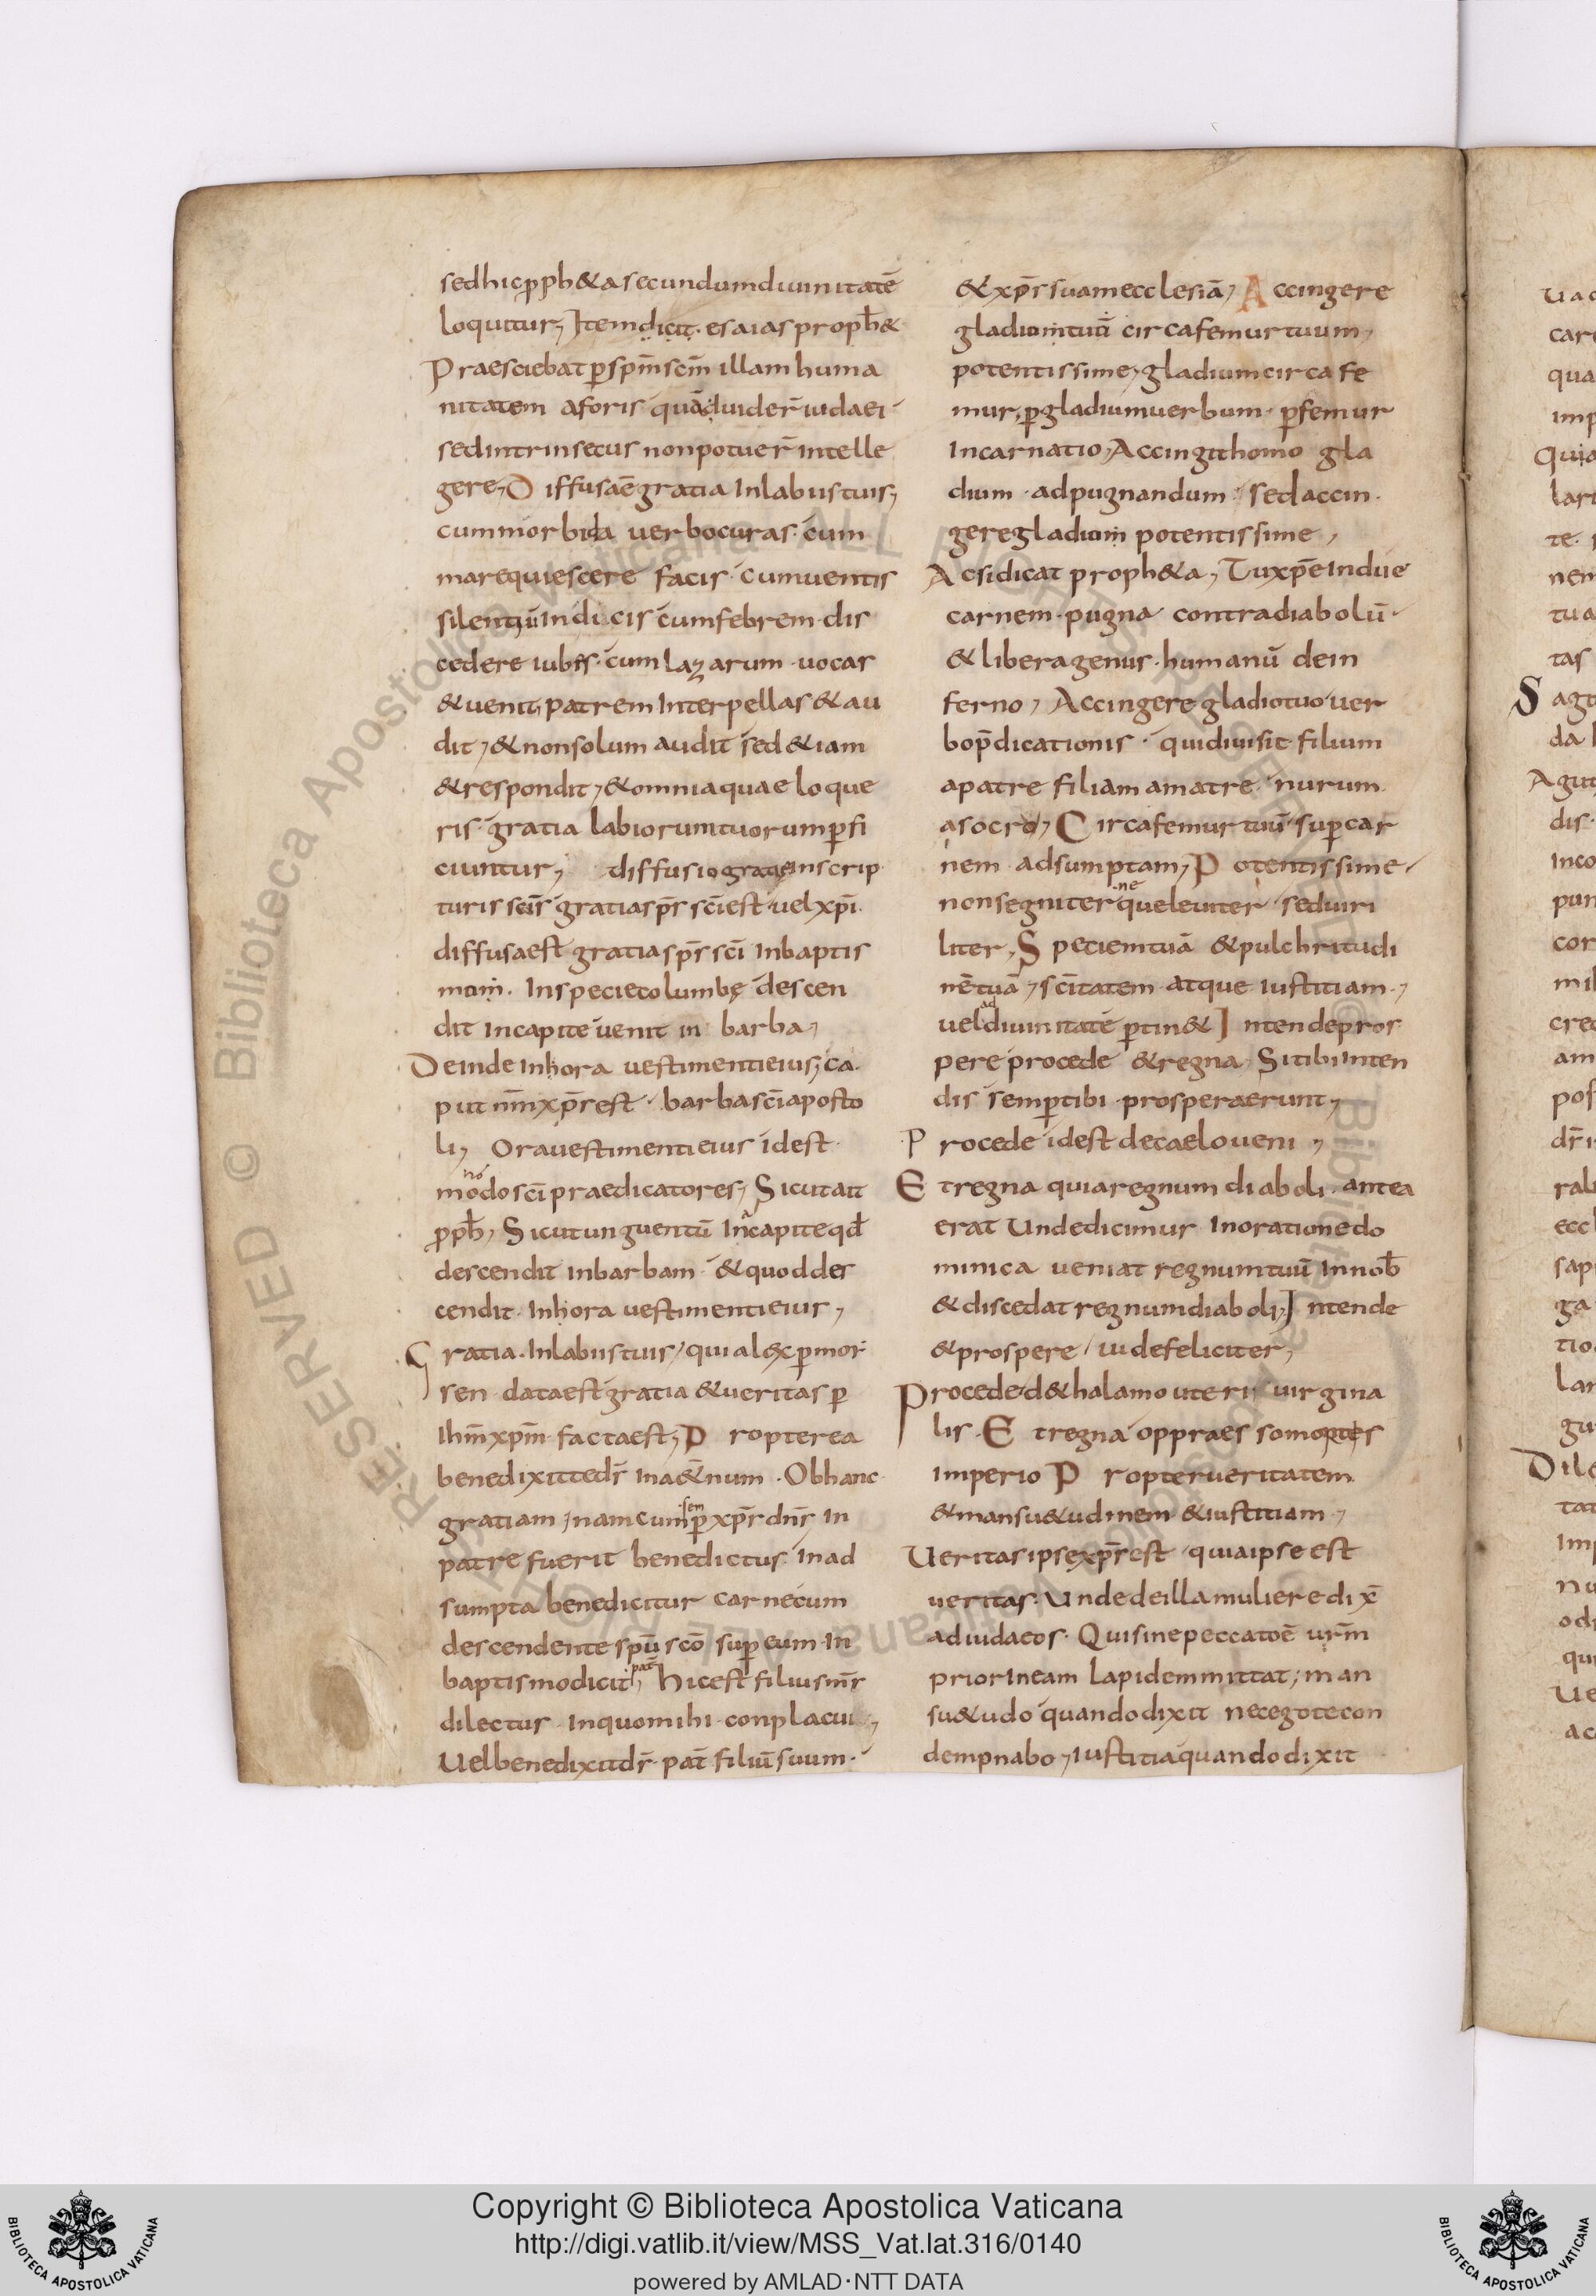 sed hic pph&a secundum diuinitatē
loquitur; Item dicit. esaias proph̄&
Praesciebat p spm̄ scm̄ illam huma
nitatem aforis quā uider̄ iudaei
sed intrinsecus non potuer̄ intelle
gere; Diffusa ē gratia In labiis tuis;
cum morbida uerbo curas. cum
mare quiescere facis. cum uentis
silentiū Indicis cum febrem dis
cedere iubes. cum lazarum uocas
& uenit; patrem Interpellas & au
dit; & non solum audit sed & iam
& respondit; & omnia quae loque
ris gratia labiorum tuorum pfi
ciuntur; diffusio gratiae In scrip
turis scīs gratia sps̄ scī est uel xpī
diffusa est gratia sps̄ scī In baptis
mom. In specie columbę descen
dit In capite uenit in barba;
Deinde In hora uestimenti eius; ca
put nm̄ xps̄ est. barba scī aposto
li; Ora uestimenti eius id est
modo scī praedicatores; Sicut ait
pph̄; Sicut unguentū In capite qd̄
descendit In barbam & quod des
cendit. In hora uestimenti eius;
Gratia. In labiis tuis, quia lex p moy
sen data est gratia & ueritas p
Ihm̄ xpm̄ facta est; Propterea
benedixit te ds̄ In a&̄num. Ob hanc
gratiam, nam cum semp xps̄ dn̄s In
patre fuerit benedictus. In ad
sumpta benedicitur carne cum
descendente spū scō sup eum In
baptismo dicit pat̄; hic est filius ms̄
dilectus. In quo mihi conplacui;
Uel benedixit ds̄ pat̄ filiū suum.
& xps̄ suam ecclesiā; Accingere
gladium tuū circa femur tuum,
potentissime; gladium circa fe
mur, p gladium uerbum. p femur
Incarnatio; Accingit homo gla
dium ad pugnandum. sed accin
gere gladium potentissime,
Ac si dicat proph&a, Tu xpē Indue
carnem. pugna contra diabolū
& libera genus. humanū de in
ferno, Accingere gladio tuo uer
bo p̄dicationis. qui diuisit filium
a patre filiam a matre nurum
a socro; Circa femur tuū sup car
nem adsumptam; Potentissime
non segniter neque leuiter sed uiri
liter, Speciem tuā & pulchritudi
nē tuā, scīitatem atque iustitiam,
uel ad diuinitatē ptin& Intende pros
pere procede & regna, Si tibi Inten
dis semp tibi prospera erunt,
Procede id est de caelo ueni,
Et regna quia regnum diaboli. antea
erat Unde dicimus In oratione do
minica ueniat regnum tuū In nob̄
& discedat regnum diaboli; Intende
& prospere, uide feliciter,
Procede d& halamo uteri uirgina
lis. Et regna oppraesso mortes
Imperio Propter ueritatem
& mansu&udinem & iustitiam,
Ueritas ipse xps̄ est quia ipse est
ueritas. Unde de illa muliere dix̄
ad iudaeos. Qui sine peccato ē urm̄
prior In eam lapidem mittat; man
su&udo quando dixit nec ego te con
dempnabo; Iustitia quando dixit
Copyright © Biblioteca Apostolica Vaticana
http://digi.vatlib.it/view/MSS_Vat.lat.316/0140
powered by AMLAD·NTT DATA